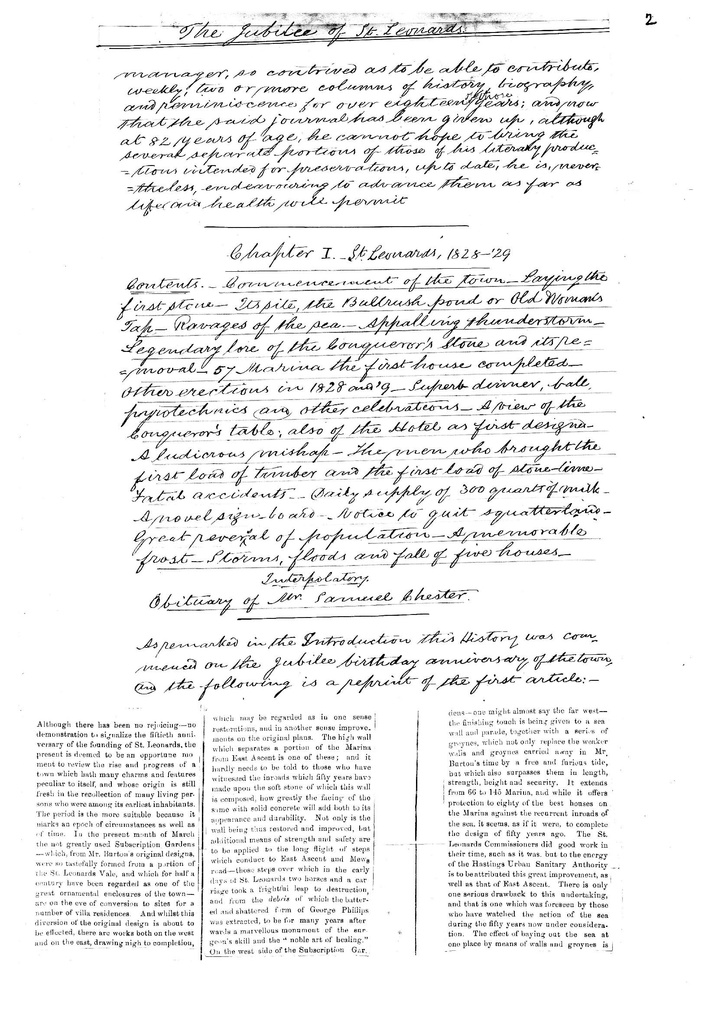 The Jubilee of St. Leonards.
2
manager, so contrived as to be able to contribute,
weekly, two or more columns of history, biography,
and reminiscence for over eighteen years; and now
that the said journal has been given up, although
at 82 years of age, he cannot hope to bring the
several separate portions of those of his literary produc-
=tions intended for preservations, up to date, he is, never-
=theless, endeavouring to advance them as far as
life and health will permit
Chapter I. St Leonards, 1828-'29
Contents. - Commencement of the town - Laying the
first stone - Its site, the Bullrush pond or Old Woman's
Tap - Ravages of the sea - Appalling thunderstorm -
Legendary lore of the Conqueror's Stone and its re-
=moval - 57 Marina the first house completed -
Other erections in 1828 and '9 - Superb dinner, ball,
pyrotechnics and other celebrations - A view of the
Conqueror's table; also of the Hotel as first designed -
A ludicrous mishap - The men who brought the
first load of timber and the first load of stone-lime -
Fatal accidents - Daily supply of 300 quarts of milk -
A novel sign-board - Notice to quit squatterland -
Great reversal of population - A memorable
frost - Storms, floods and fall of five houses -
Interpolatory.
Obituary of Mr. Samuel Chester.
As remarked in the Introduction this History was com-
menced on the Jubilee birthday anniversary of the town,
and the following is a reprint of the first article:-
Although there has been no rejoicing—no
demonstration to signalize the fiftieth anni-
versary of the founding of St. Leonards, the
present is deemed to be an opportune mo-
ment to review the rise and progress of a
town which hath many charms and features
peculiar to itself, and whose origin is still
fresh in the recollection of many living per-
sons who were among its earliest inhabitants.
The period is the more suitable because it
marks an epoch of circumstances as well as
of time. In the present month of March
the not greatly used Subscription Gardens
—which, from Mr. Burton's original designs,
were so tastefully formed from a portion of
the St. Leonards Vale, and which for half a
century have been regarded as one of the
great ornamental enclosures of the town—
are on the eve of conversion to sites for a
number of villa residences. And whilst this
diversion of the original design is about to
be effected, there are works both on the west
and on the east, drawing nigh to completion,
which may be regarded as in one sense
restorations, and in another sense improve-
ments on the original plans. The high wall
which separates a portion of the Marina
from East Ascent is one of these; and it
hardly needs to be told to those who have
witnessed the inroads which fifty years have
made upon the soft stone of which this wall
is composed, how greatly the facing of the
same with solid concrete will add both to its
appearance and durability. Not only is the
wall being thus restored and improved, but
additional means of strength and safety are
to be applied to the long flight of steps
which conduct to East Ascent and Mews
road—those steps over which in the early
days of St. Leonards two horses and a car-
riage took a frightful leap to destruction,
and from the debris of which the batter-
ed and shattered form of George Phillips
was extracted, to be for many years after-
wards a marvellous monument of the sur-
geon's skill and the "noble art of healing."
On the west side of the Subscription Gar-
dens—one might almost say the far west—
the finishing touch is being given to a sea
wall and parade, together with a series of
groynes, which not only replace the weaker
walls and groynes carried away in Mr.
Burton's time by a free and furious tide,
but which also surpasses them in length,
strength, height and security. It extends
from 66 to 145 Marina, and while it offers
protection to eighty of the best houses on
the Marina against the recurrent inroads of
the sea, it seems, as if it were, to complete
the design of fifty years ago. The St.
Leonards Commissioners did good work in
their time, such as it was, but to the energy
of the Hastings Urban Sanitary Authority
is to be attributed this great improvement, as
well as that of East Ascent. There is only
one serious drawback to this undertaking,
and that is one which was foreseen by those
who have watched the action of the sea
during the fifty years now under considera-
tion. The effect of baying out the sea at
one place by means of walls and groynes is